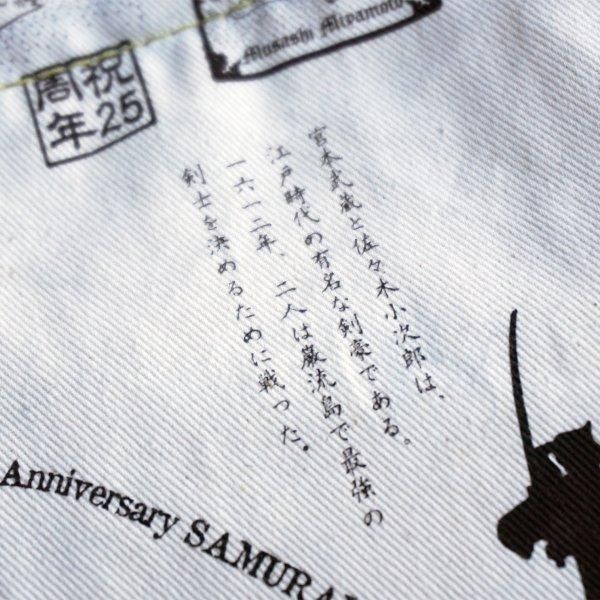 Musashi Miyamoto
祝25
周年
宮本武蔵と佐々木小次郎は、
江戸時代の有名な剣豪である。
一六一二年、二人は巌流島で最強の
剣士を決めるために戦った。
Anniversary SAMURAI